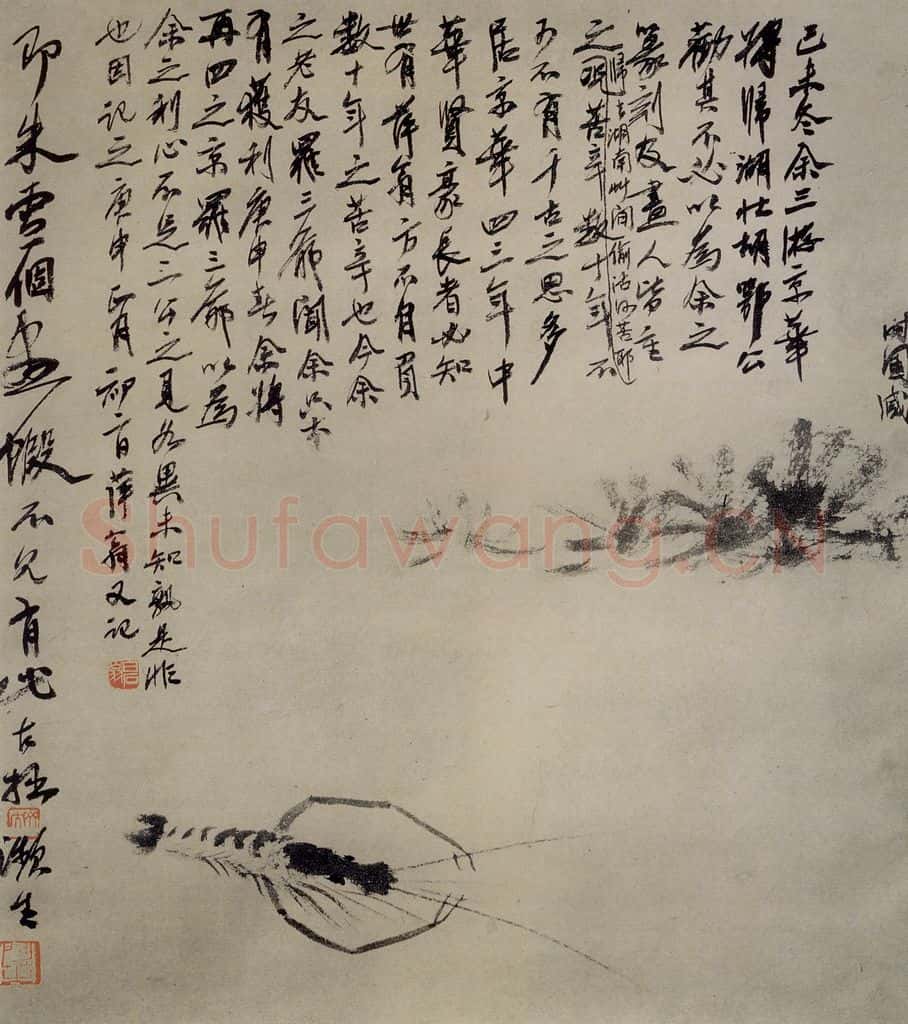 己未冬余三游京華
將歸湖胡鄂公
勸其不必以為余之
篆刻及畫人皆重
歸去湖南草間偷活何苦耶
之苦辛數十年不
可不有千古之思多
居京華四三年中
華賢豪長者必知
世有萍翁方不自負
數十年之苦辛也今余
之老友羅三爺聞余
有獲利庚申春余將
再四之京羅三爺以為
余之利心不足二公之見各異未知孰是非
也因記之庚申正月初二日萍翁又記
即朱雪個畫蝦不見有此古拙
瀕生
Shufawang.CN